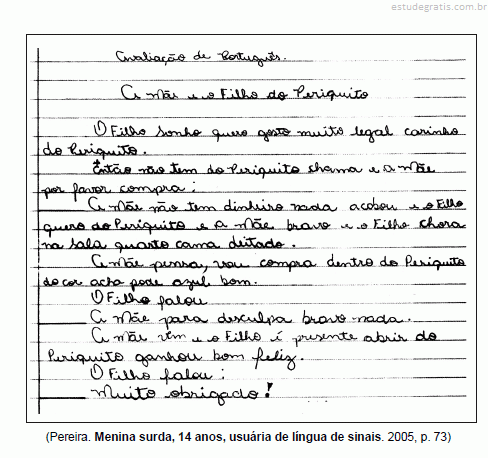 estudegratis.com.br
Avaliação de Português.
A mãe e o Filho do Periquito
O Filho sonho quero gosto muito legal carinho
do Periquito.
Então não tem do Periquito chama e a mãe
por favor compra:
A mãe não tem dinheiro nada acabou e o Filho
quero do Periquito e a mãe bravo e o Filho chora
na sala quarto cama deitado.
A mãe pensa, vou compra dentro do Periquito
do cor acha pode azul bom.
O Filho falou
A mãe para desculpa bravo nada.
A mãe vem e o Filho é presente abrir do
Periquito ganhou bom feliz.
O Filho falou:
Muito obrigado!
(Pereira. Menina surda, 14 anos, usuária de língua de sinais. 2005, p. 73)